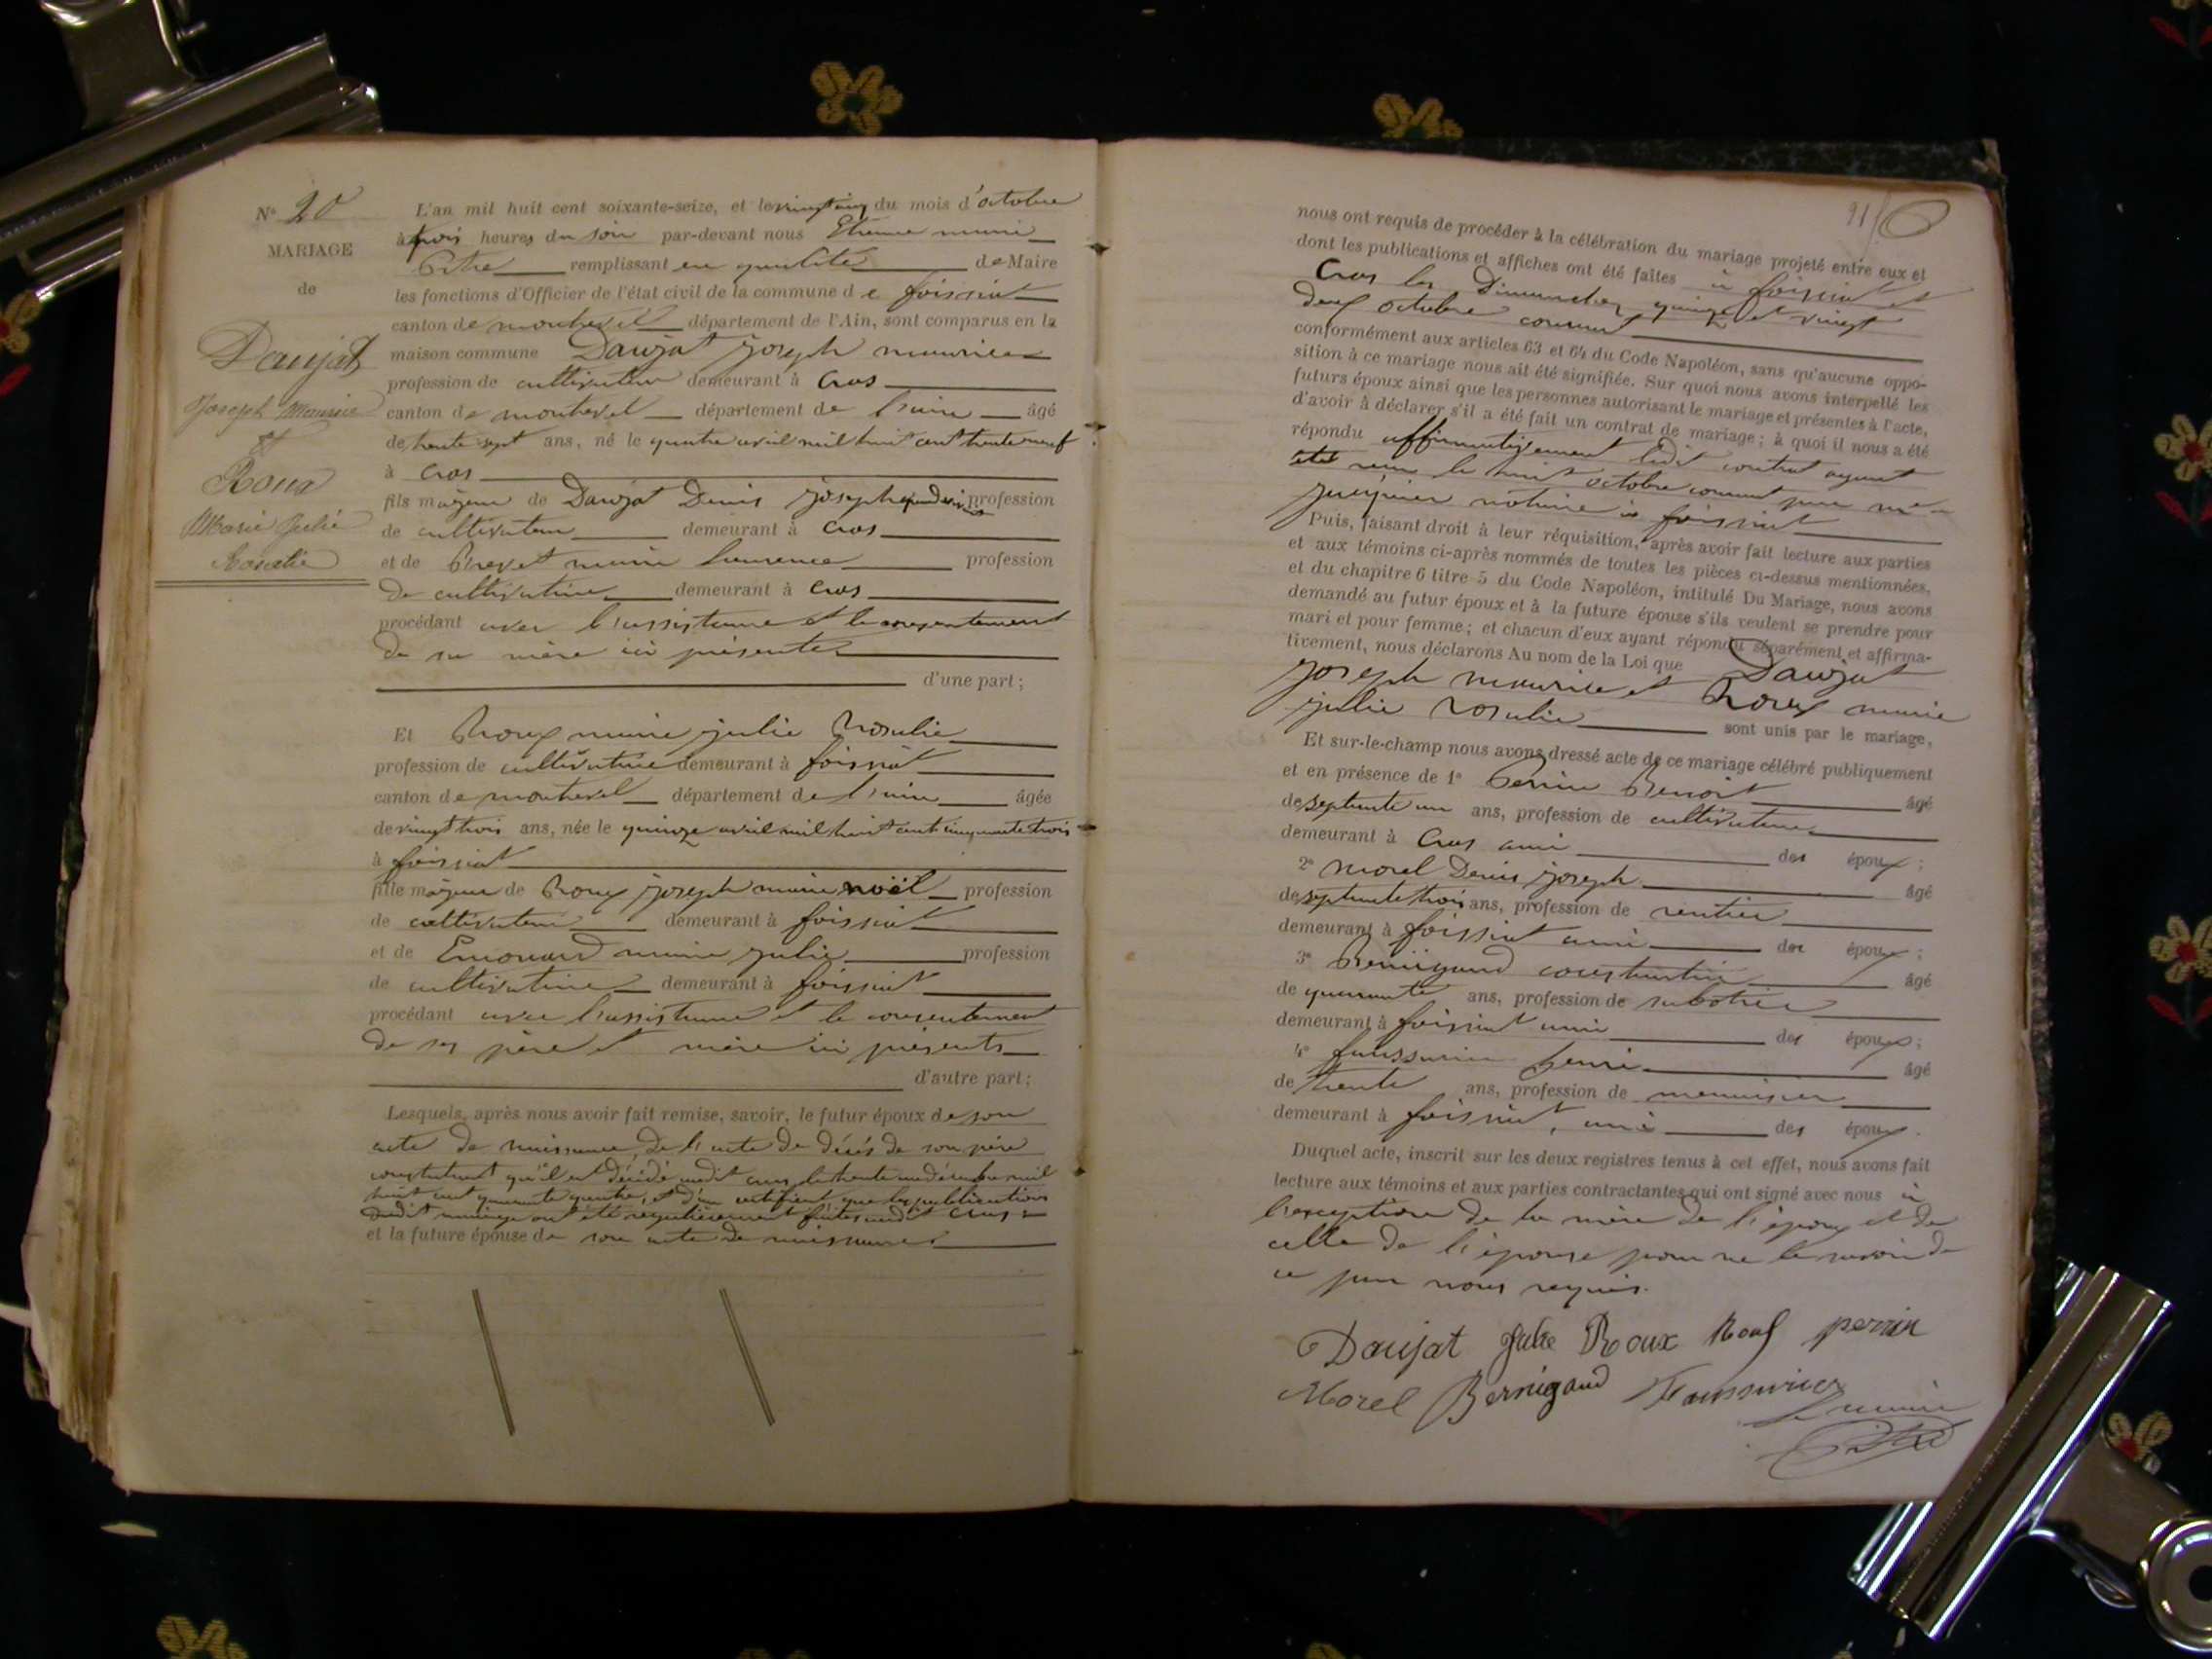 N° 20
MARIAGE
de
Daujat
Joseph Maurice
&
Roux
Marie Julie
Rosalie
L'an mil huit cent soixante-seize, et le vingt cinq du mois d'octobre
à trois heures du soir par-devant nous Etienne marie
Pitre remplissant en qualité de Maire
les fonctions d'Officier de l'état civil de la commune de foissiat
canton de montrevel département de l'Ain, sont comparus en la
maison commune Daujat joseph maurice
profession de cultivateur demeurant à Cras
canton de montrevel département de l'ain âgé
de trente sept ans, né le quatre avril mil huit cent trente neuf
à Cras
fils majeur de Daujat Denis joseph profession
de cultivateur demeurant à Cras
et de marie laurence profession
de cultivatrice demeurant à Cras
procédant avec l'assistance et le consentement
de sa mère ici présente
d'une part;
Et Roux marie julie Rosalie
profession de cultivatrice demeurant à foissiat
canton de montrevel département de l'ain âgée
de vingt trois ans, née le quinze avril mil huit cent cinquante trois
à foissiat
fille majeure de Roux joseph marie noël profession
de cultivateur demeurant à foissiat
et de marie julie profession
de cultivatrice demeurant à foissiat
procédant avec l'assistance et le consentement
de ses père et mère ici présents
d'autre part;
Lesquels, après nous avoir fait remise, savoir, le futur époux de son
acte de naissance, de l'acte de décès de son père
constatant qu'il est décédé audit Cras le trente un décembre mil
huit cent quarante quatre, et d'un certificat que les publications
dudit mariage ont été régulièrement faites audit Cras
et la future épouse de son acte de naissance
91
nous ont requis de procéder à la célébration du mariage projeté entre eux et
dont les publications et affiches ont été faites à foissiat et
Cras les Dimanches quinze et vingt
deux octobre courant
conformément aux articles 63 et 64 du Code Napoléon, sans qu'aucune oppo-
sition à ce mariage nous ait été signifiée. Sur quoi nous avons interpellé les
futurs époux ainsi que les personnes autorisant le mariage et présentes à l'acte,
d'avoir à déclarer s'il a été fait un contrat de mariage; à quoi il nous a été
répondu affirmativement ledit contrat ayant
été reçu le huit octobre courant par me
notaire à foissiat
Puis, faisant droit à leur réquisition, après avoir fait lecture aux parties
et aux témoins ci-après nommés de toutes les pièces ci-dessus mentionnées,
et du chapitre 6 titre 5 du Code Napoléon, intitulé Du Mariage, nous avons
demandé au futur époux et à la future épouse s'ils veulent se prendre pour
mari et pour femme; et chacun d'eux ayant répondu séparément et affirma-
tivement, nous déclarons Au nom de la Loi que Daujat
joseph maurice et Roux marie
julie rosalie sont unis par le mariage,
Et sur-le-champ nous avons dressé acte de ce mariage célébré publiquement
et en présence de 1° Perrin Benoit âgé
de septante un ans, profession de cultivateur
demeurant à Cras ami des époux;
2° morel Denis joseph âgé
de septante trois ans, profession de rentier
demeurant à foissiat ami des époux;
3° Bernigaud constantin âgé
de quarante ans, profession de sabotier
demeurant à foissiat ami des époux;
4° faussurier henri âgé
de trente ans, profession de menuisier
demeurant à foissiat, ami des époux.
Duquel acte, inscrit sur les deux registres tenus à cet effet, nous avons fait
lecture aux témoins et aux parties contractantes qui ont signé avec nous à
l'exception de la mère de l'époux et de
celle de l'épouse pour ne le savoir de
ce par nous requis.
Daujat Julie Roux Roux perrin
Morel Bernigaud Faussurier
Le maire
Pitre